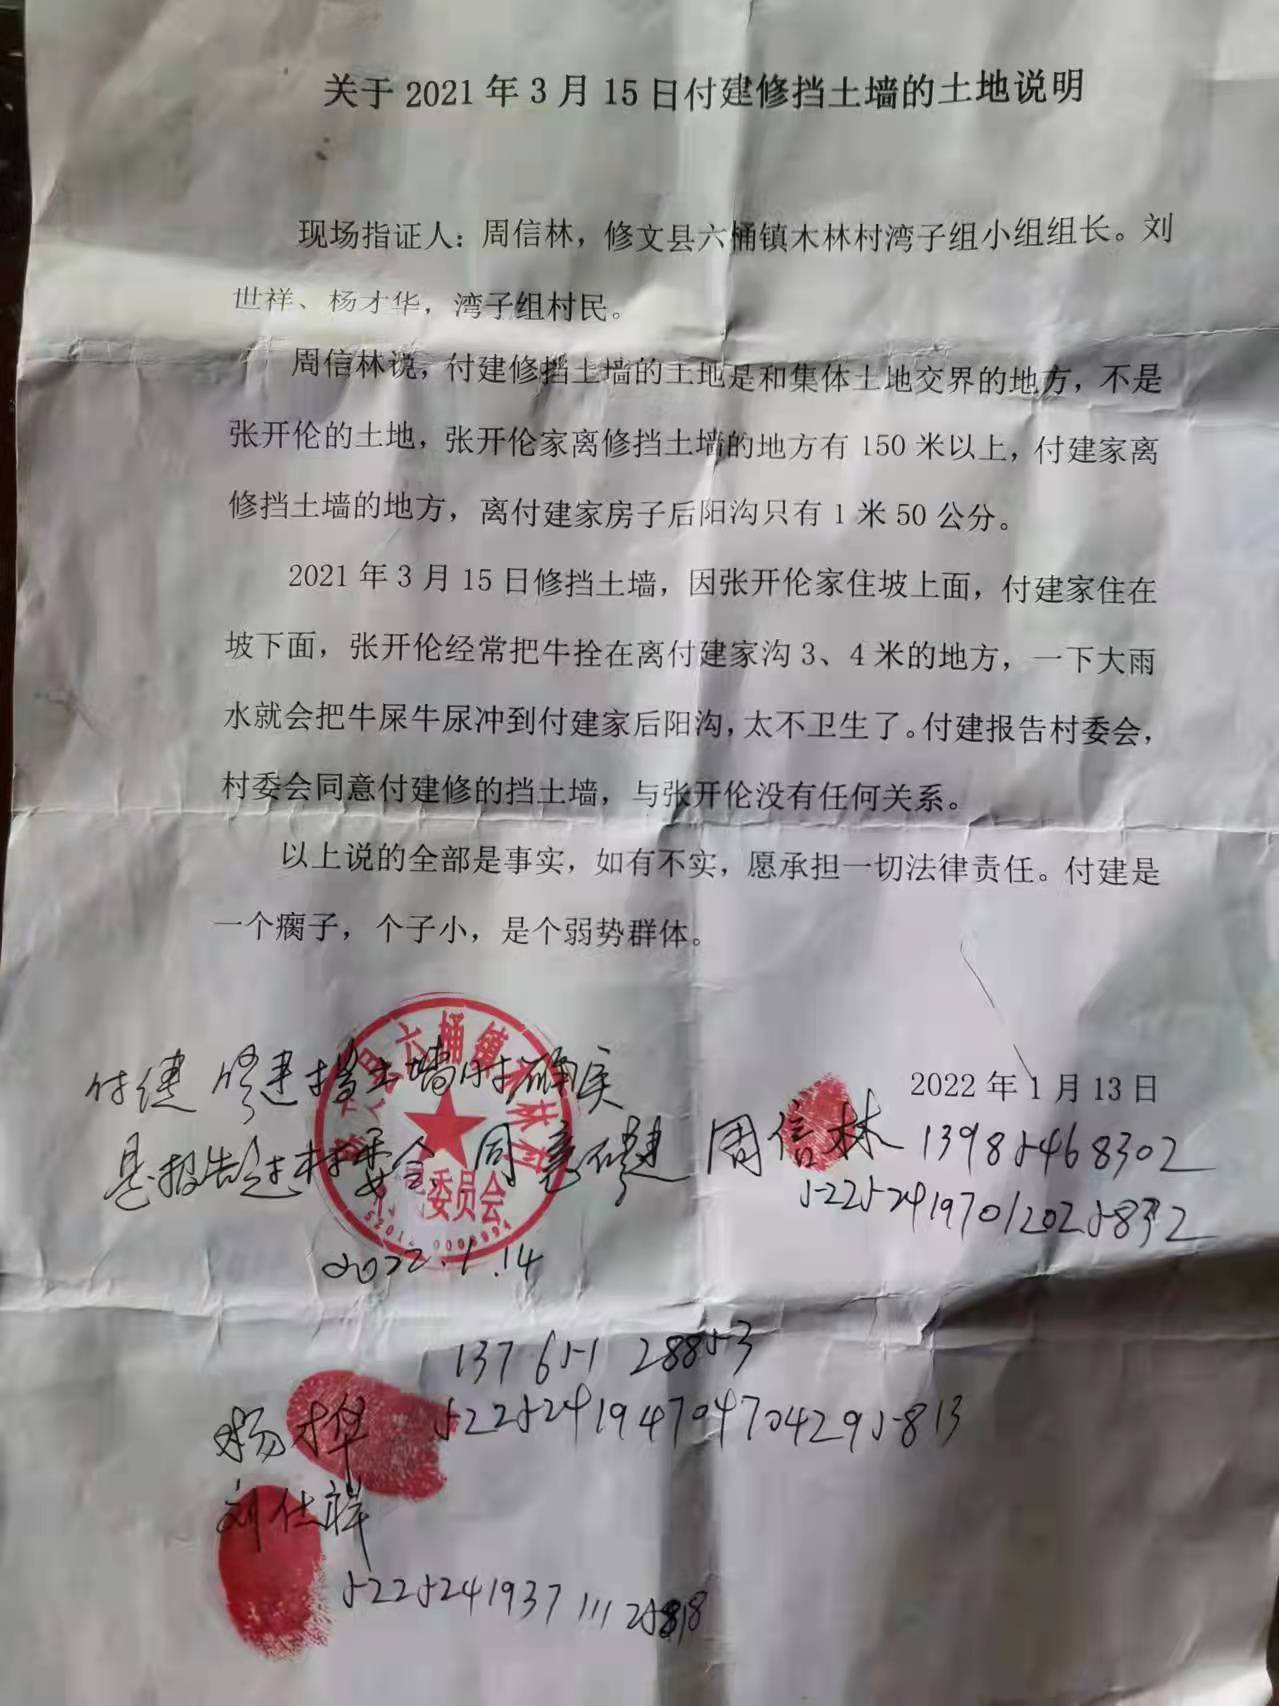 关于 2021 年 3 月 15 日付建修挡土墙的土地说明
现场指证人：周信林，修文县六桶镇木林村湾子组小组组长。刘
世祥、杨才华，湾子组村民。
周信林说，付建修挡土墙的土地是和集体土地交界的地方，不是
张开伦的土地，张开伦家离修挡土墙的地方有 150 米以上，付建家离
修挡土墙的地方，离付建家房子后阳沟只有 1 米 50 公分。
2021 年 3 月 15 日修挡土墙，因张开伦家住坡上面，付建家住在
坡下面，张开伦经常把牛拴在离付建家沟 3、4 米的地方，一下大雨
水就会把牛屎牛尿冲到付建家后阳沟，太不卫生了。付建报告村委会，
村委会同意付建修的挡土墙，与张开伦没有任何关系。
以上说的全部是事实，如有不实，愿承担一切法律责任。付建是
一个瘸子，个子小，是个弱势群体。
2022 年 1 月 13 日
付建 修建挡土墙时确实
是报告过村委会 同意修建
县六桶镇木林村
委员会
2022.1.14
周信林 13985468302
13765128853
杨才华
刘仕祥